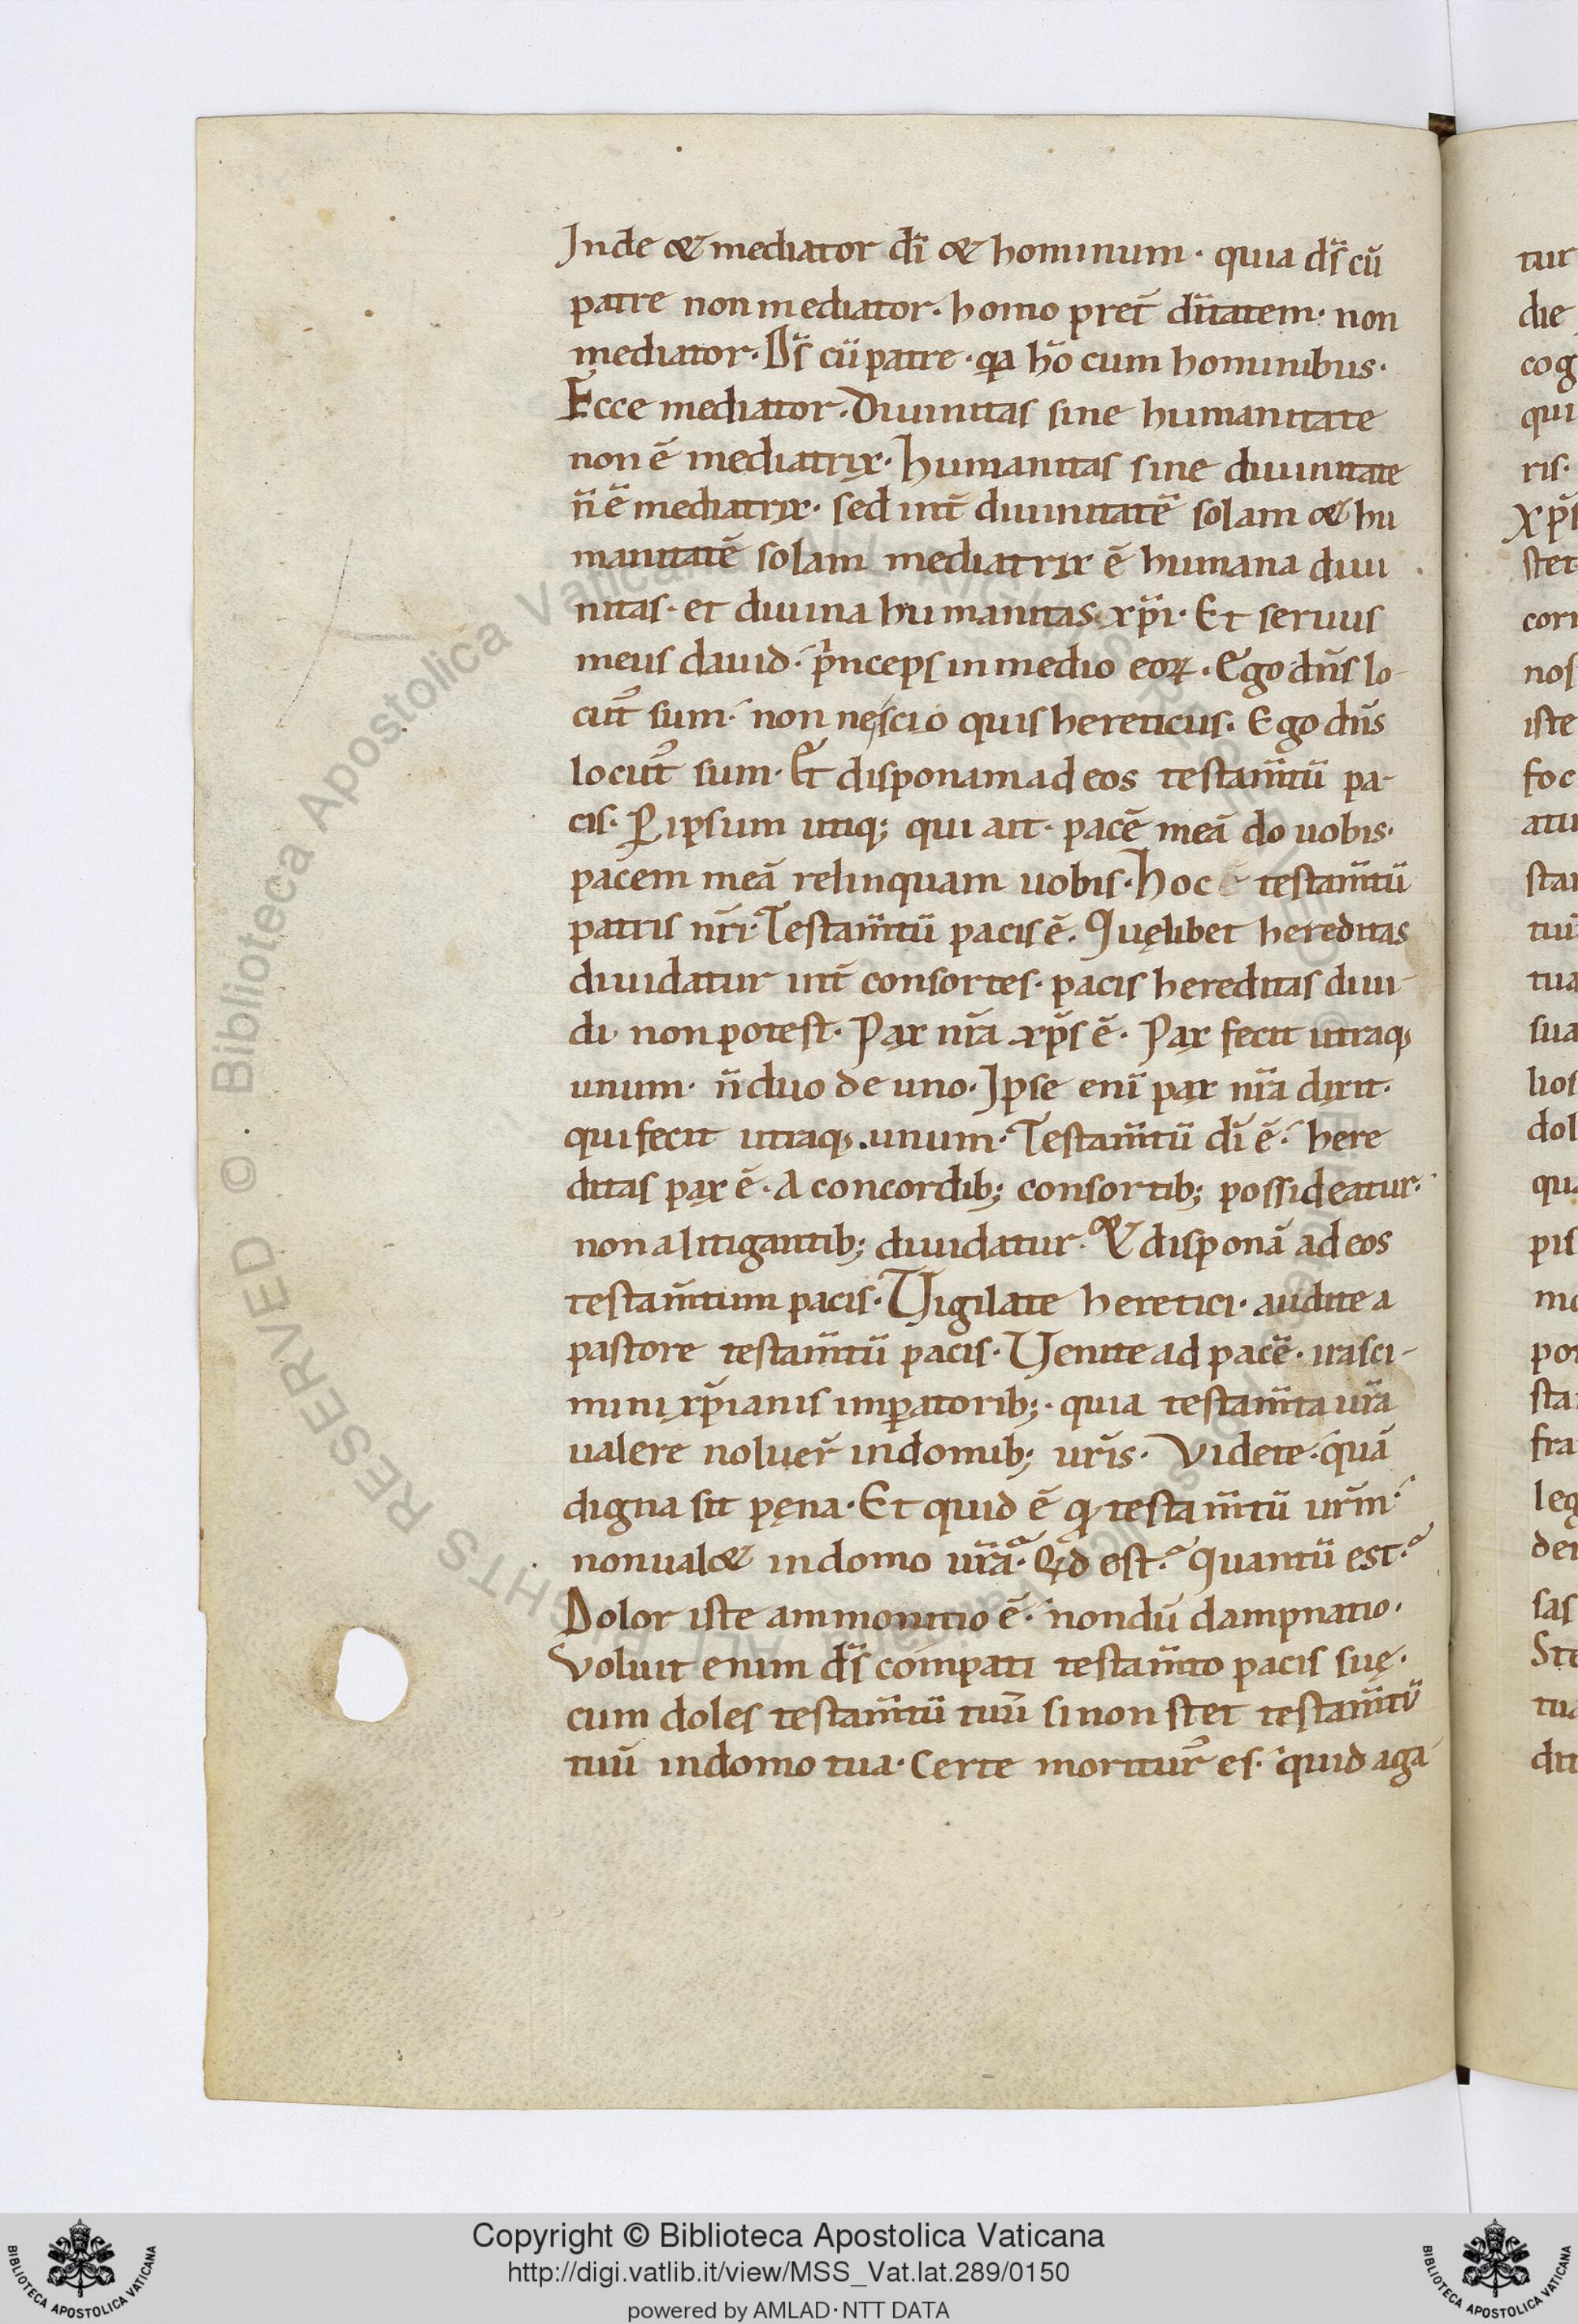 Inde & mediator dī & hominum · quia ds̄ cū
patre non mediator · homo pret̄ dīītatem · non
mediator · Ds̄ cū patre · qa hō cum hominibus ·
Ecce mediator · Diuinitas sine humanitate
non ē mediatrix · humanitas sine diuinitate
n̄ ē mediatrix · sed int̄ diuinitatē solam & hu
manitatē solam mediatrix ē humana diui
nitas · et diuina humanitas xp̄i · Et seruus
meus dauid · pinceps in medio eoꝝ · Ego dn̄s lo-
cut᷒ sum · non nescio quis hereticus · Ego dn̄s
locut᷒ sum · Et disponam ad eos testam̄tū pa-
cis · Ꝑ ipsum utiq; qui ait · pacē meā do uobis ·
pacem meā relinquam uobis · hoc ē testam̄tū
patris nr̄i · Testam̄tū pacis ē · Quęlibet hereditas
diuidatur int̄ consortes · pacis hereditas diui-
di non potest · Pax nr̄a xp̄s ē · Pax fecit utraq;
unum · n̄ duo de uno · Ipse enī pax nr̄a dixit ·
qui fecit utraq; unum · Testam̄tū dī ē · here
ditas pax ē · A concordib; consortib; possideatur ·
non a litigantib; diuidatur · & disponā ad eos
testam̄tum pacis · Uigilate heretici · audite a
pastore testam̄tū pacis · Uenite ad pacē · irasci-
mini xp̄ianis imꝑatorib; · quia testam̄ta ur̄a
ualere noluer̄ in domib; ur̄is · Videte · quā
digna sit pęna · Et quid ē ꝙ testam̄tū ur̄m ·
non ual& in domo ur̄a · Qid est · quantū est ·
Dolor iste ammonitio ē · nondū dampnatio ·
Voluit enim ds̄ compati testam̄to pacis suę ·
cum doles testam̄tū tuū si non stet testam̄tū
tuū in domo tua · Certe moritur᷒ es · quid aga
tur
die
cog
qui
ris ·
Xp̄s
stet
corr
nos
iste
foc
atu
star
tuū
tua
sua
lios
dol
qua
pis
mo
por
sta
fra
leg
der
sas
Ste
tua
dit
© Biblioteca Apostolica Vaticana ALL RIGHTS RESERVED
Copyright © Biblioteca Apostolica Vaticana
http://digi.vatlib.it/view/MSS_Vat.lat.289/0150
powered by AMLAD·NTT DATA
BIBLIOTECA APOSTOLICA VATICANA
BIBLIOTECA APOSTOLICA VATICANA